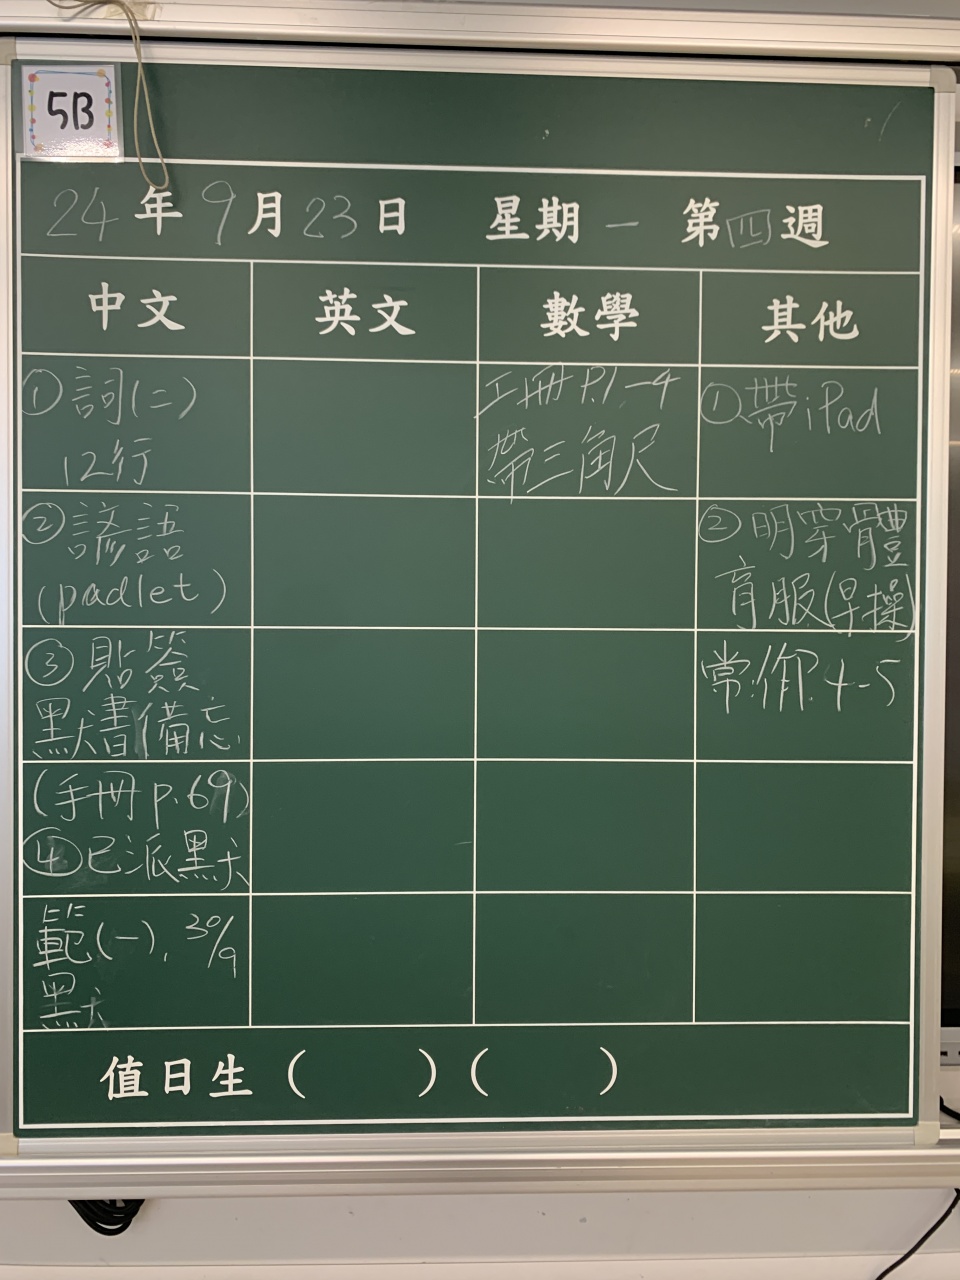 5B
24年9月23日 星期一 第四週
中文 英文 數學 其他
①詞(二)
12行
②諺語
(padlet)
③貼簽
默書備忘
(手冊p.69)
④已派默
範(一), 30/9
默
工冊P.1-4
帶三角尺
①帶iPad
②明穿體
育服(早操)
常:作P.4-5
值日生 ( ) ( )